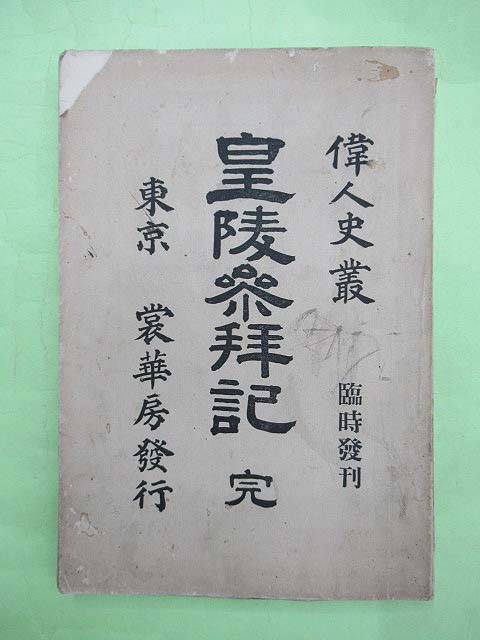 偉人史叢
臨時發刊
皇陵参拜記 完
東京 裳華房發行